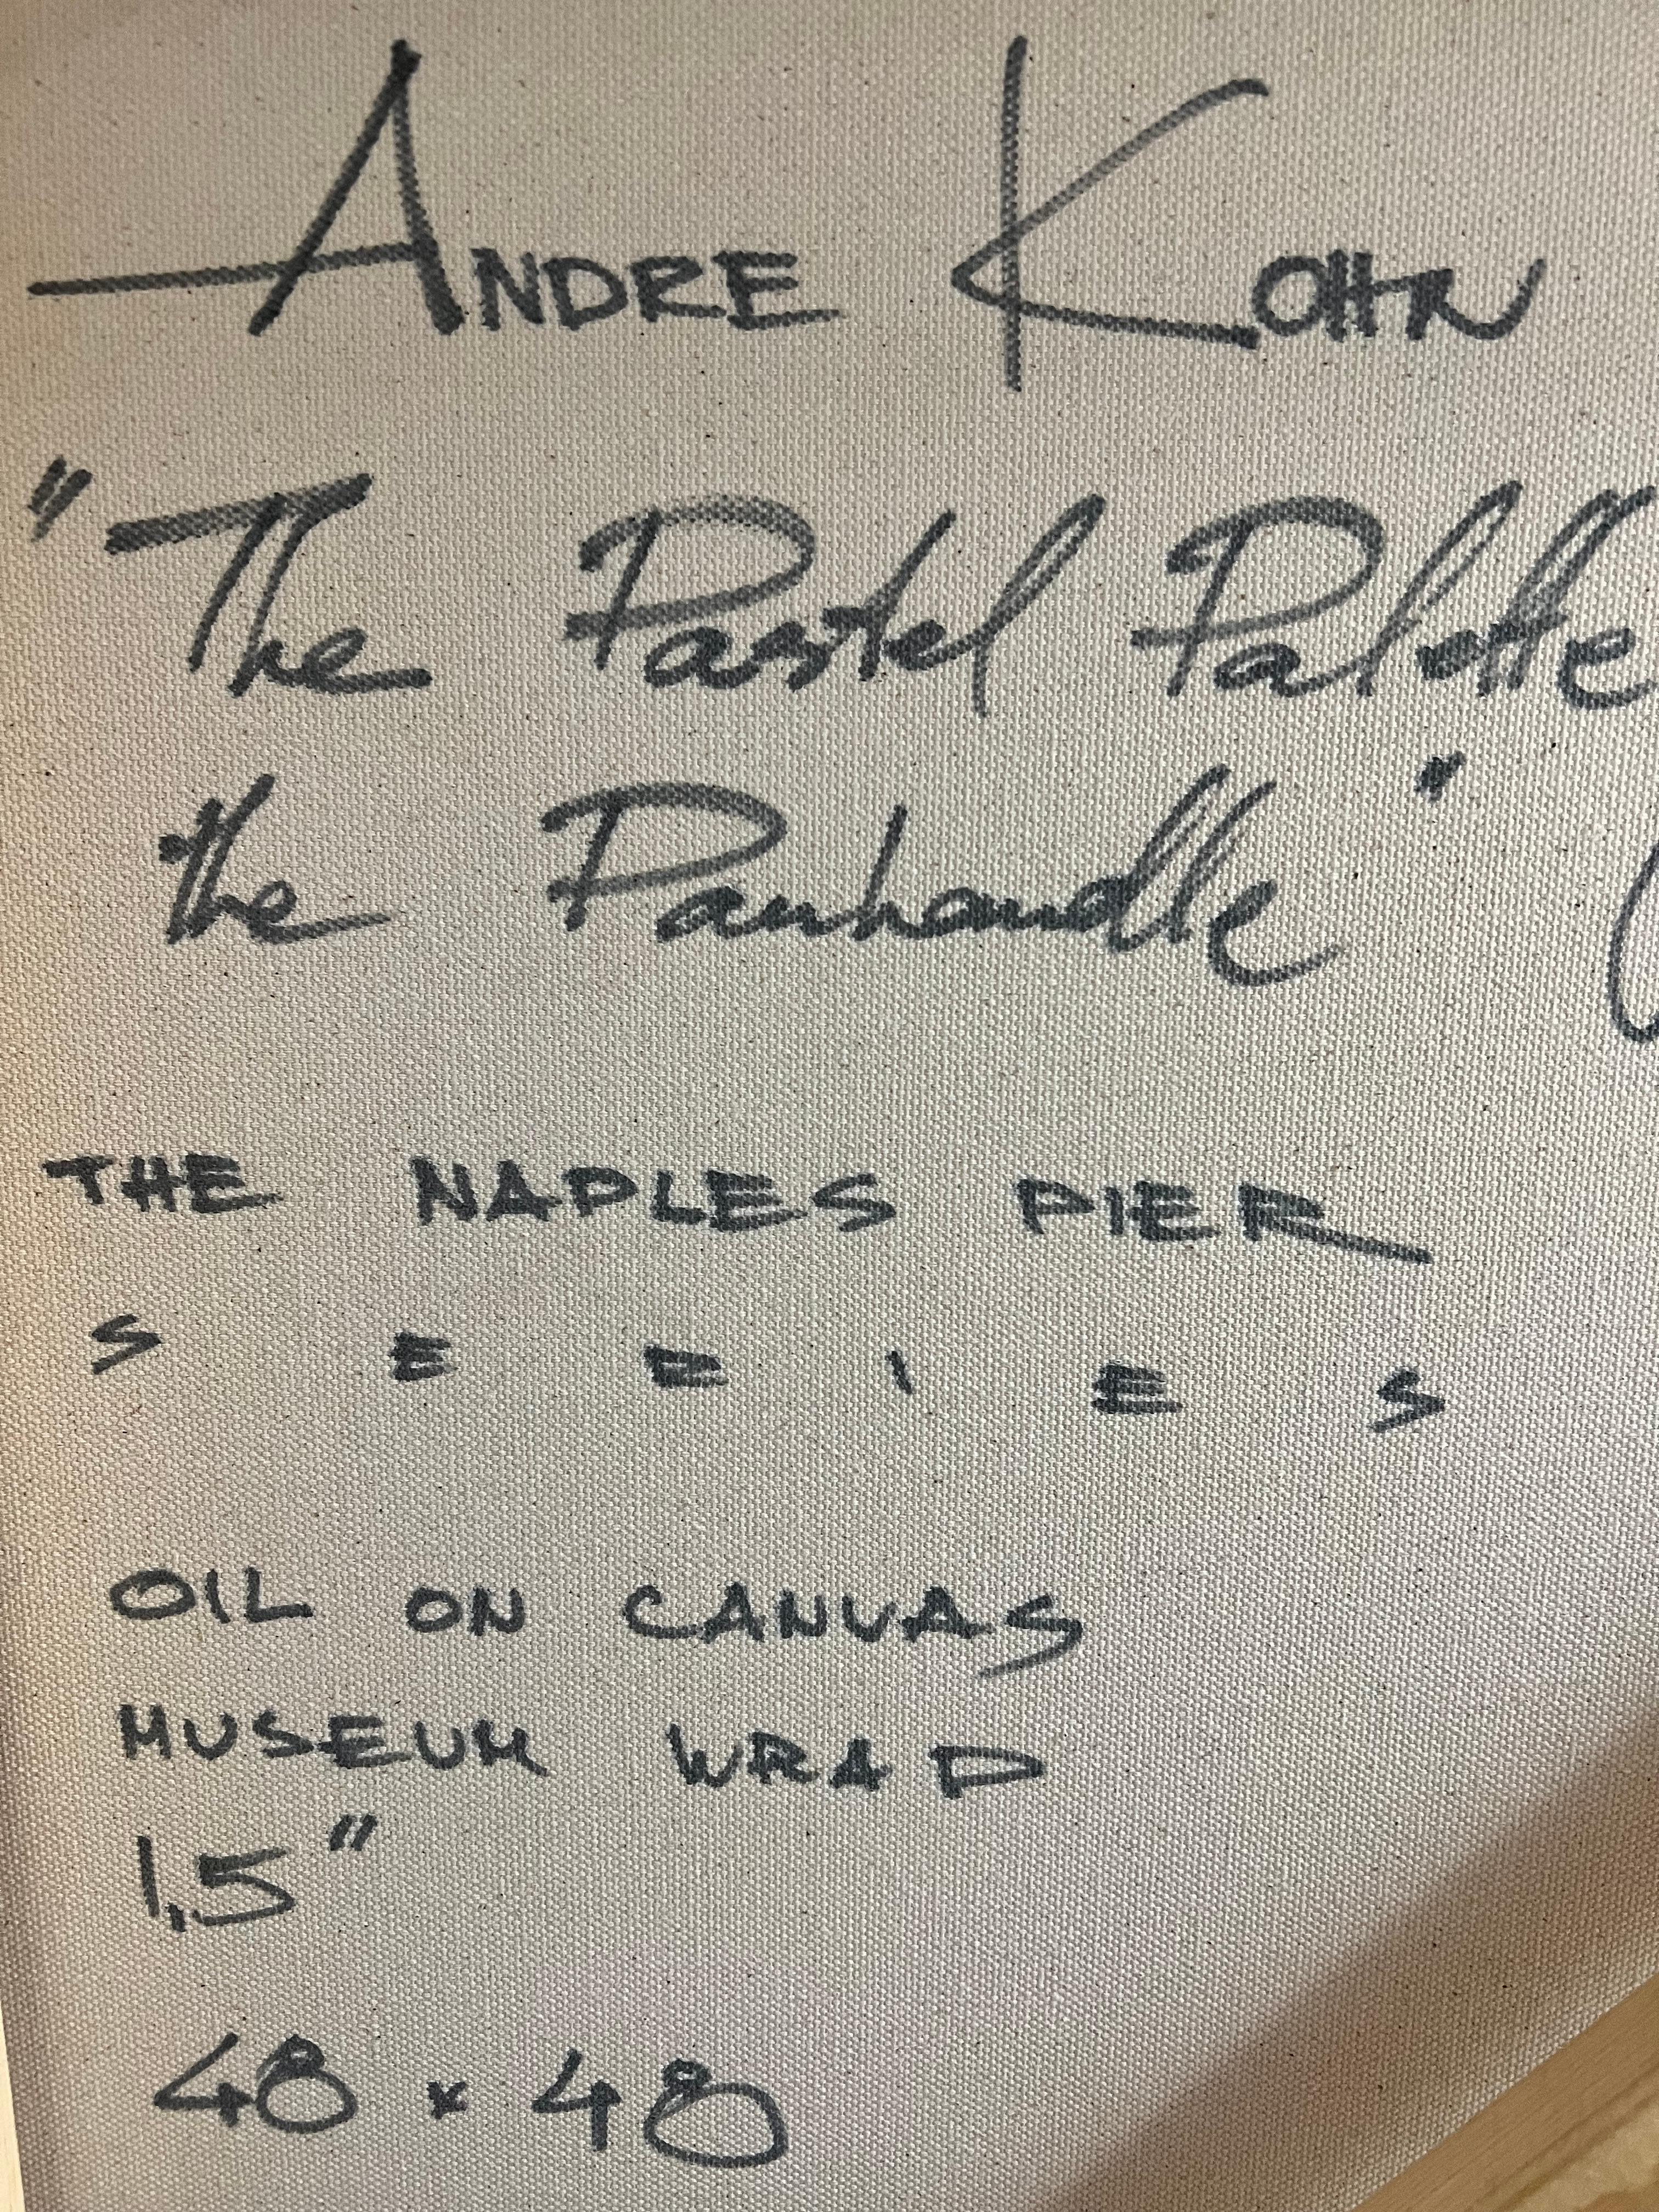 ANDRE KOHN
"The Pastel Palette
the Panhandle"
THE NAPLES PIER
S E R I E S
OIL ON CANVAS
MUSEUM WRAP
1,5"
48 x 48